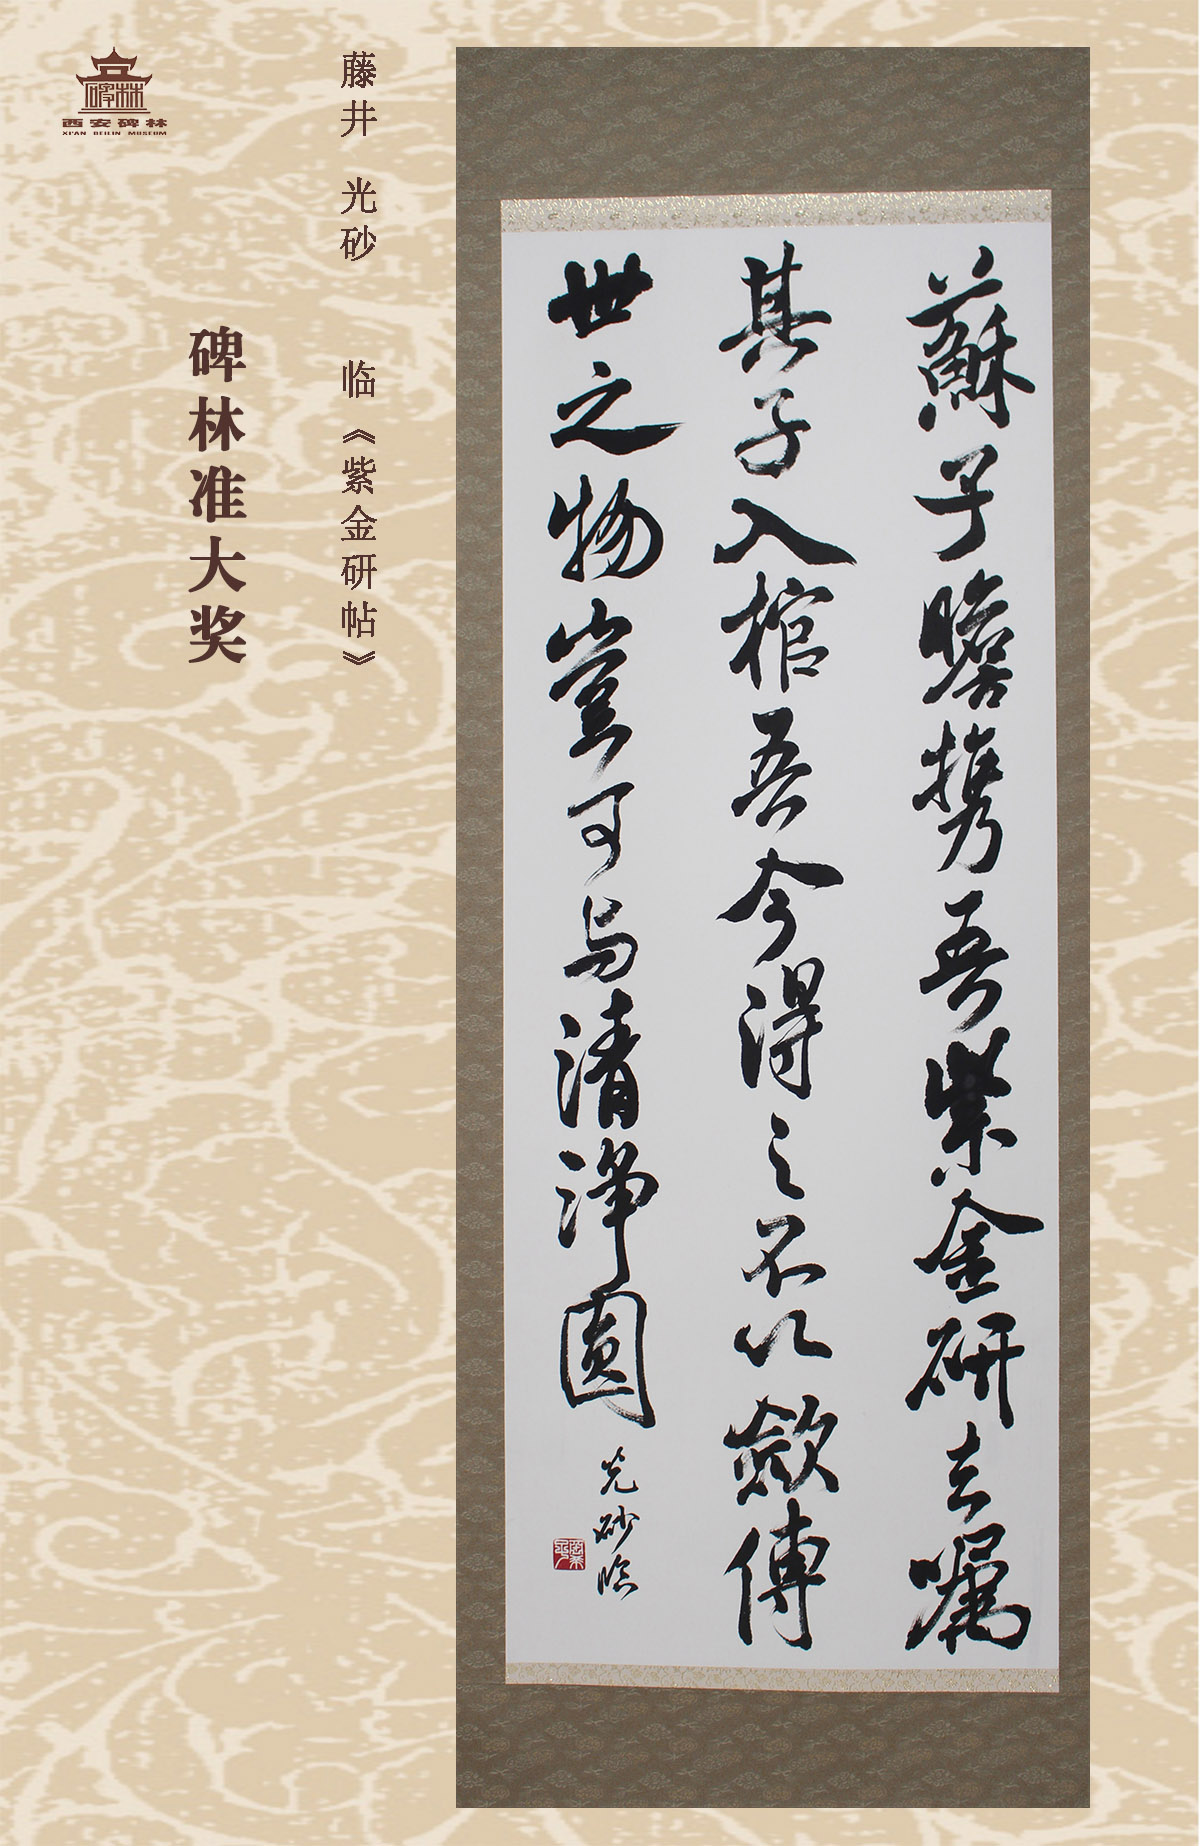 西安碑林
XI'AN BEILIN MUSEUM
碑林准大奖
藤井 光砂 临《紫金研帖》
蘇子瞻携吾紫金研去嘱
其子入棺吾今得之不以歛傳
世之物豈可与清浄圓
光砂臨